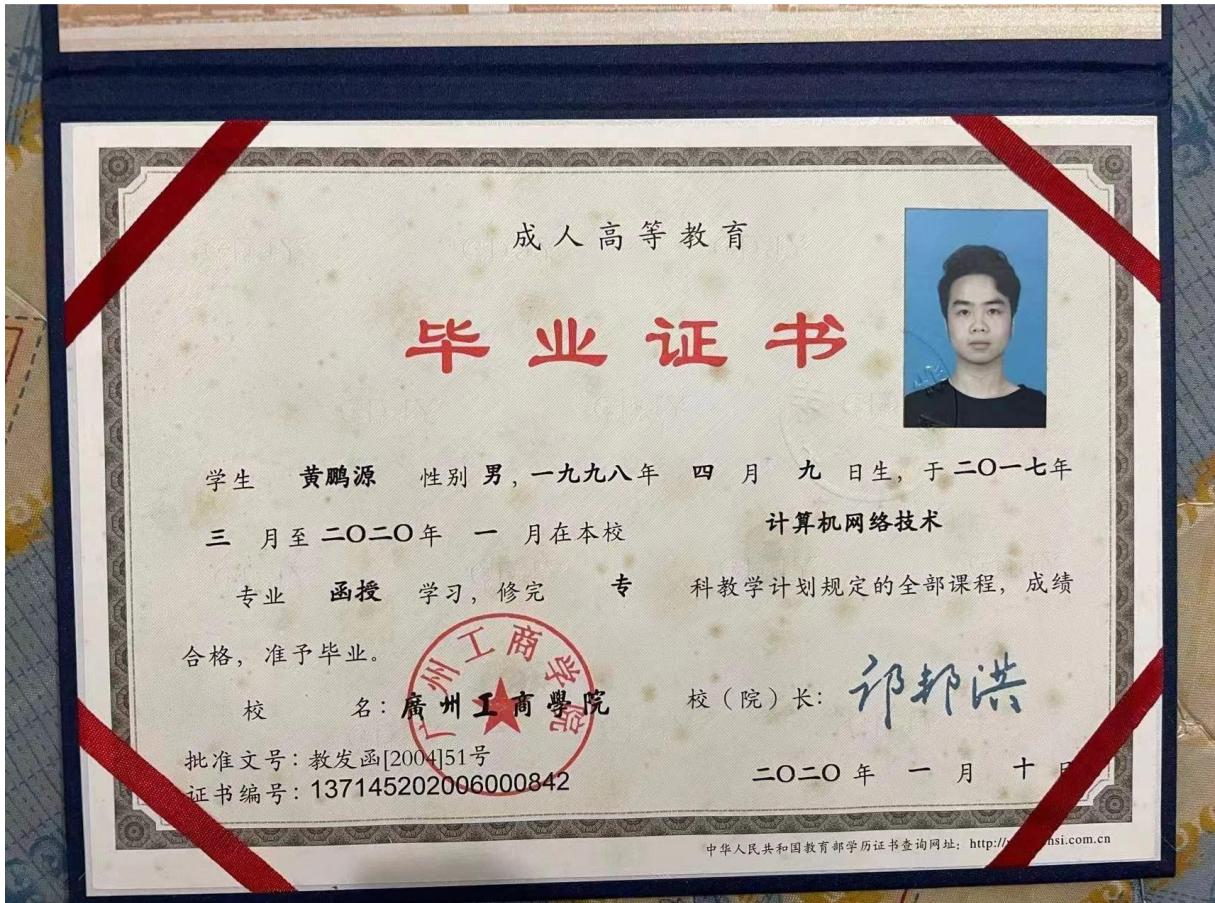 成人高等教育
毕业证书
学生 黄鹏源 性别 男，一九九八年 四 月 九 日生，于二〇一七年
三 月至 二〇二〇年 一 月在本校 计算机网络技术
专业 函授 学习，修完 专 科教学计划规定的全部课程，成绩
合格，准予毕业。
广州工商学院
校 名：廣州工商學院 校（院）长：
批准文号：教发函[2004]51号
证书编号：137145202006000842
二〇二〇 年 一 月 十 日
中华人民共和国教育部学历证书查询网址：http://
si.com.cn